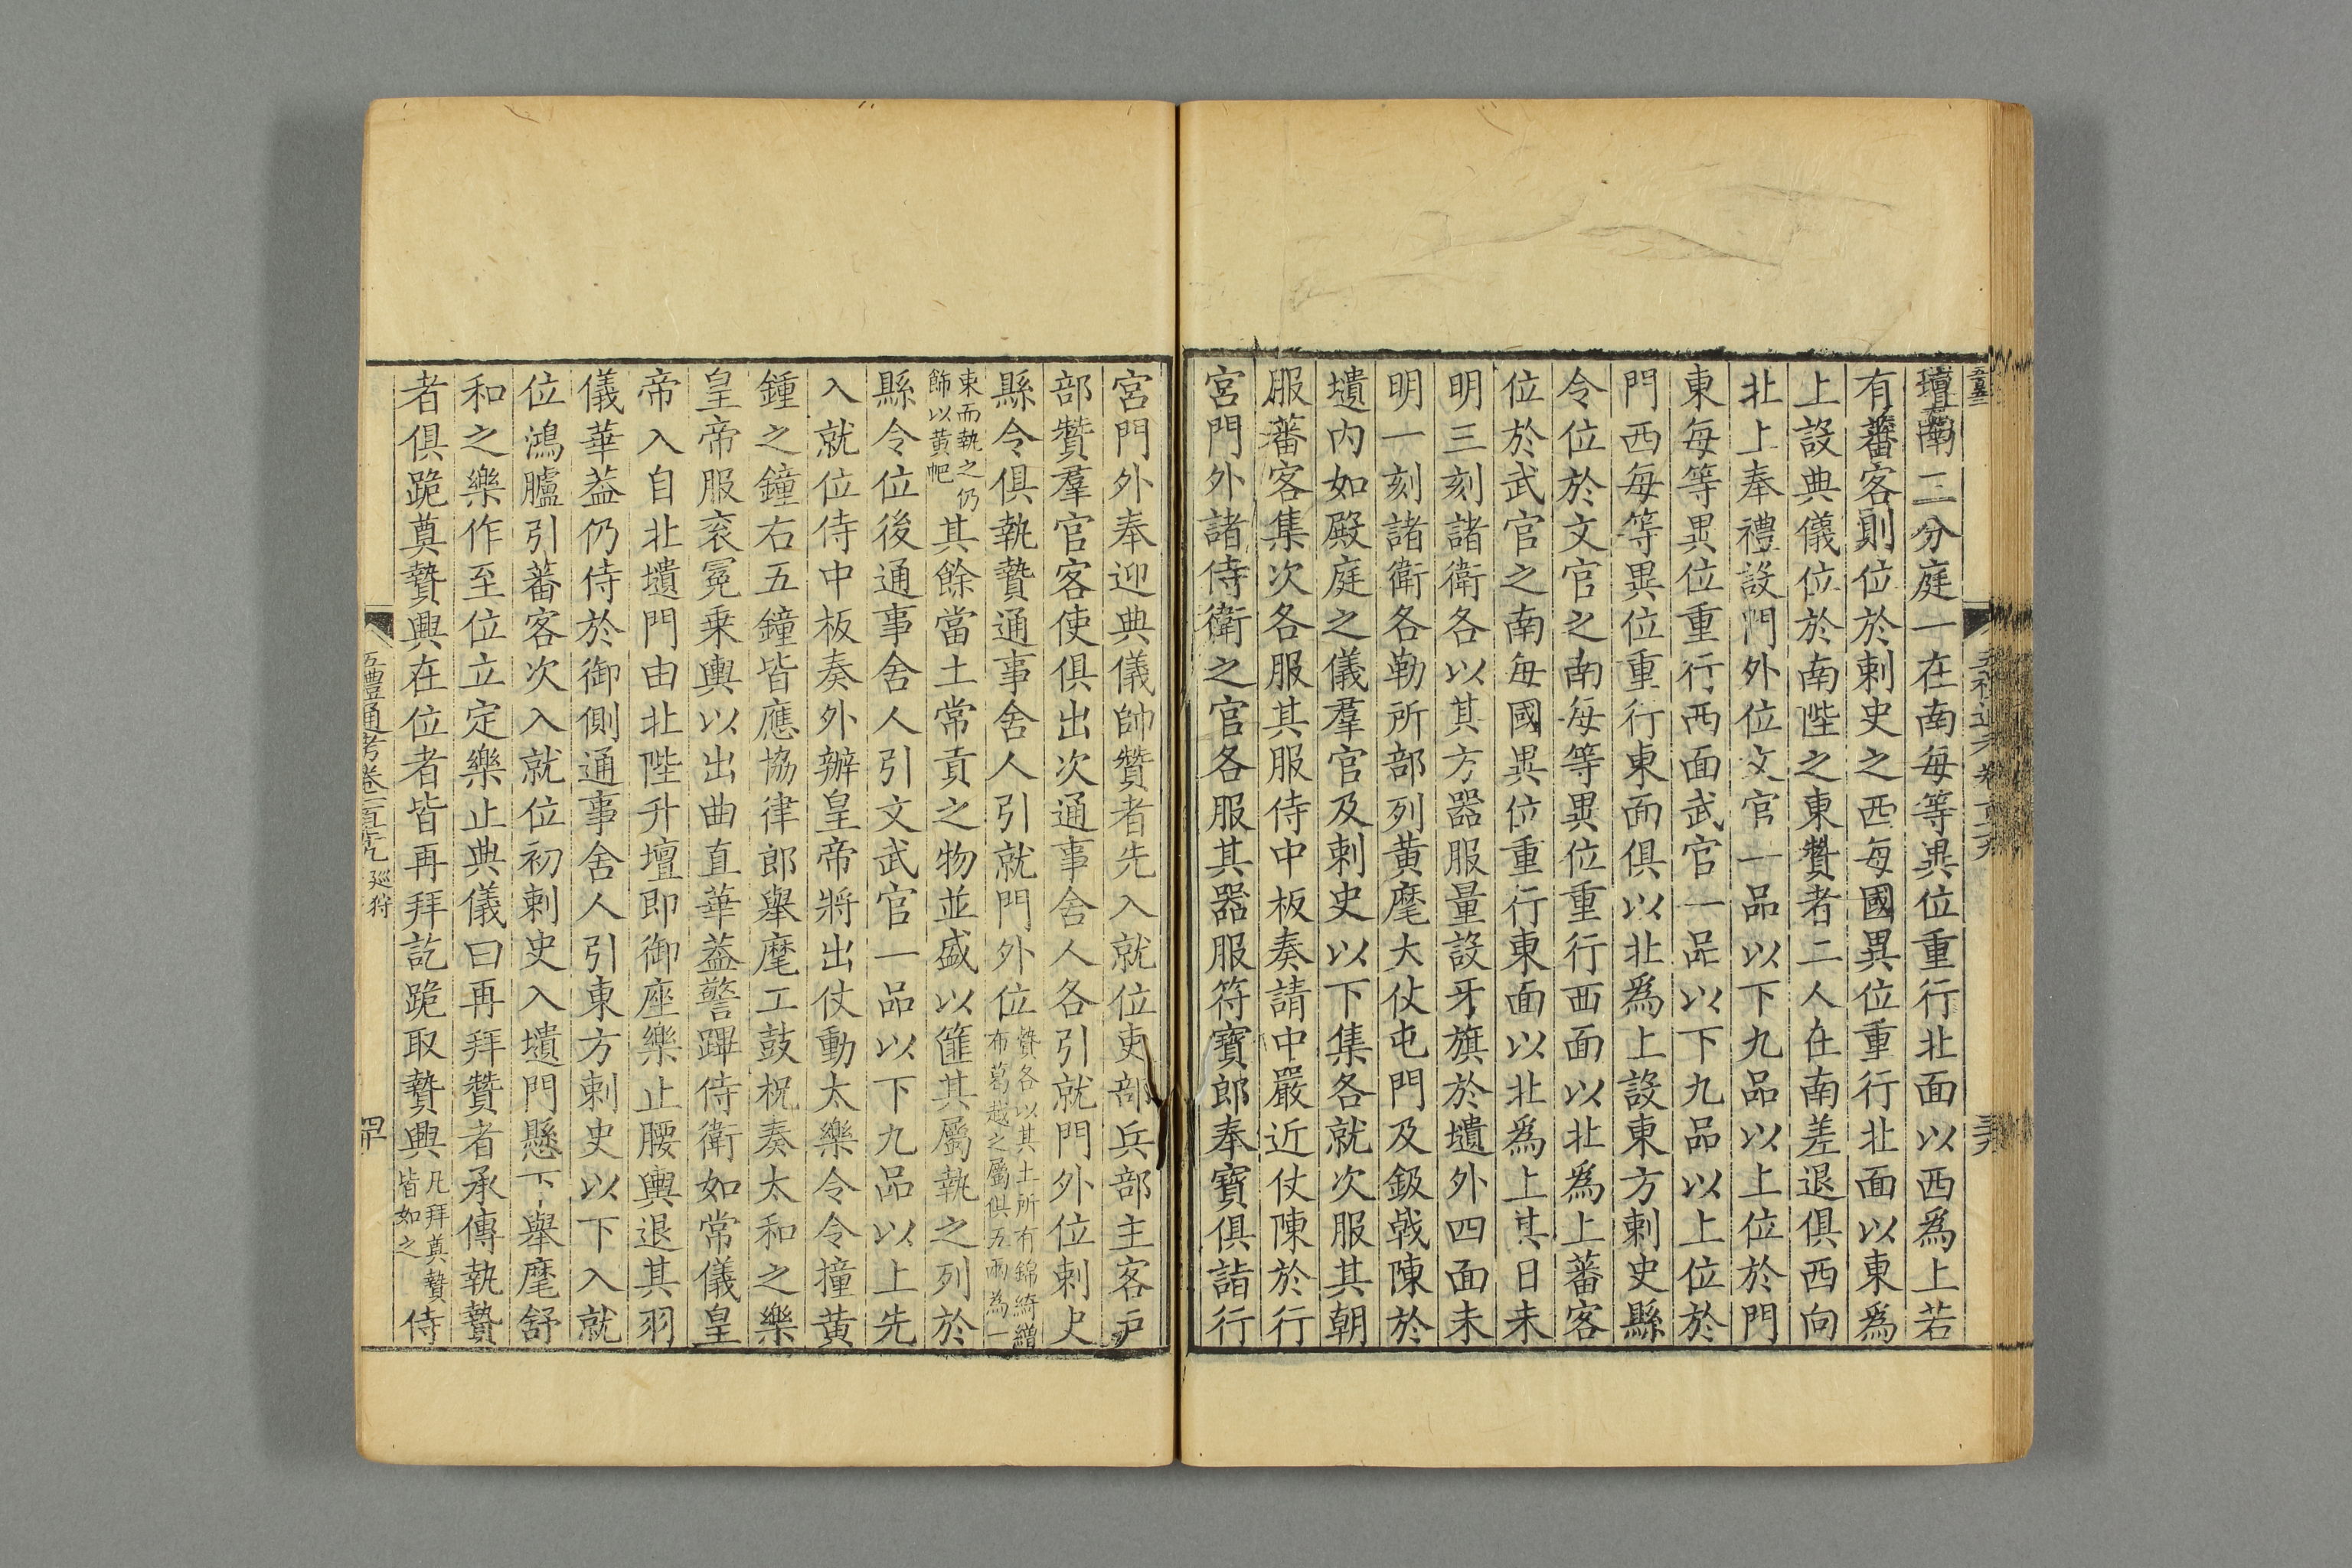 壇南二分庭一在南每等異位重行北面以西爲上若
有蕃客則位於刺史之西每國異位重行北面以東爲
上設典儀位於南陛之東贊者二人在南差退俱西向
北上奉禮設門外位文官一品以下九品以上位於門
東每等異位重行西面武官一品以下九品以上位於
門西每等異位重行東面俱以北爲上設東方刺史縣
令位於文官之南每等異位重行西面以北爲上蕃客
位於武官之南每國異位重行東面以北爲上其日未
明三刻諸衛各以其方器服量設牙旗於壝外四面未
明一刻諸衛各勒所部列黄麾大仗屯門及鈒戟陳於
壝内如殿庭之儀羣官及刺史以下集各就次服其朝
服蕃客集次各服其服侍中板奏請中嚴近仗陳於行
宮門外諸侍衛之官各服其器服符寶郎奉寶俱詣行
宮門外奉迎典儀帥贊者先入就位吏部兵部主客戸
部贊羣官客使俱出次通事舍人各引就門外位刺史
縣令俱執贄通事舍人引就門外位贄各以其土所有錦綺繒布葛越之屬俱五兩為一
束而執之仍飾以黄帊其餘當土常貢之物並盛以篚其屬執之列於
縣令位後通事舍人引文武官一品以下九品以上先
入就位侍中板奏外辦皇帝將出仗動太樂令令撞黄
鍾之鐘右五鐘皆應協律郎舉麾工鼓柷奏太和之樂
皇帝服衮冕乗輿以出曲直華葢警蹕侍衛如常儀皇
帝入自北壝門由北陛升壇即御座樂止腰輿退其羽
儀華葢仍侍於御側通事舍人引東方刺史以下入就
位鴻臚引蕃客次入就位初刺史入壝門懸下舉麾舒
和之樂作至位立定樂止典儀曰再拜贊者承傳執贄
者俱跪奠贄興在位者皆再拜訖跪取贄興凡拜奠贄皆如之侍
五禮通考卷一百七十九 廵狩
四十